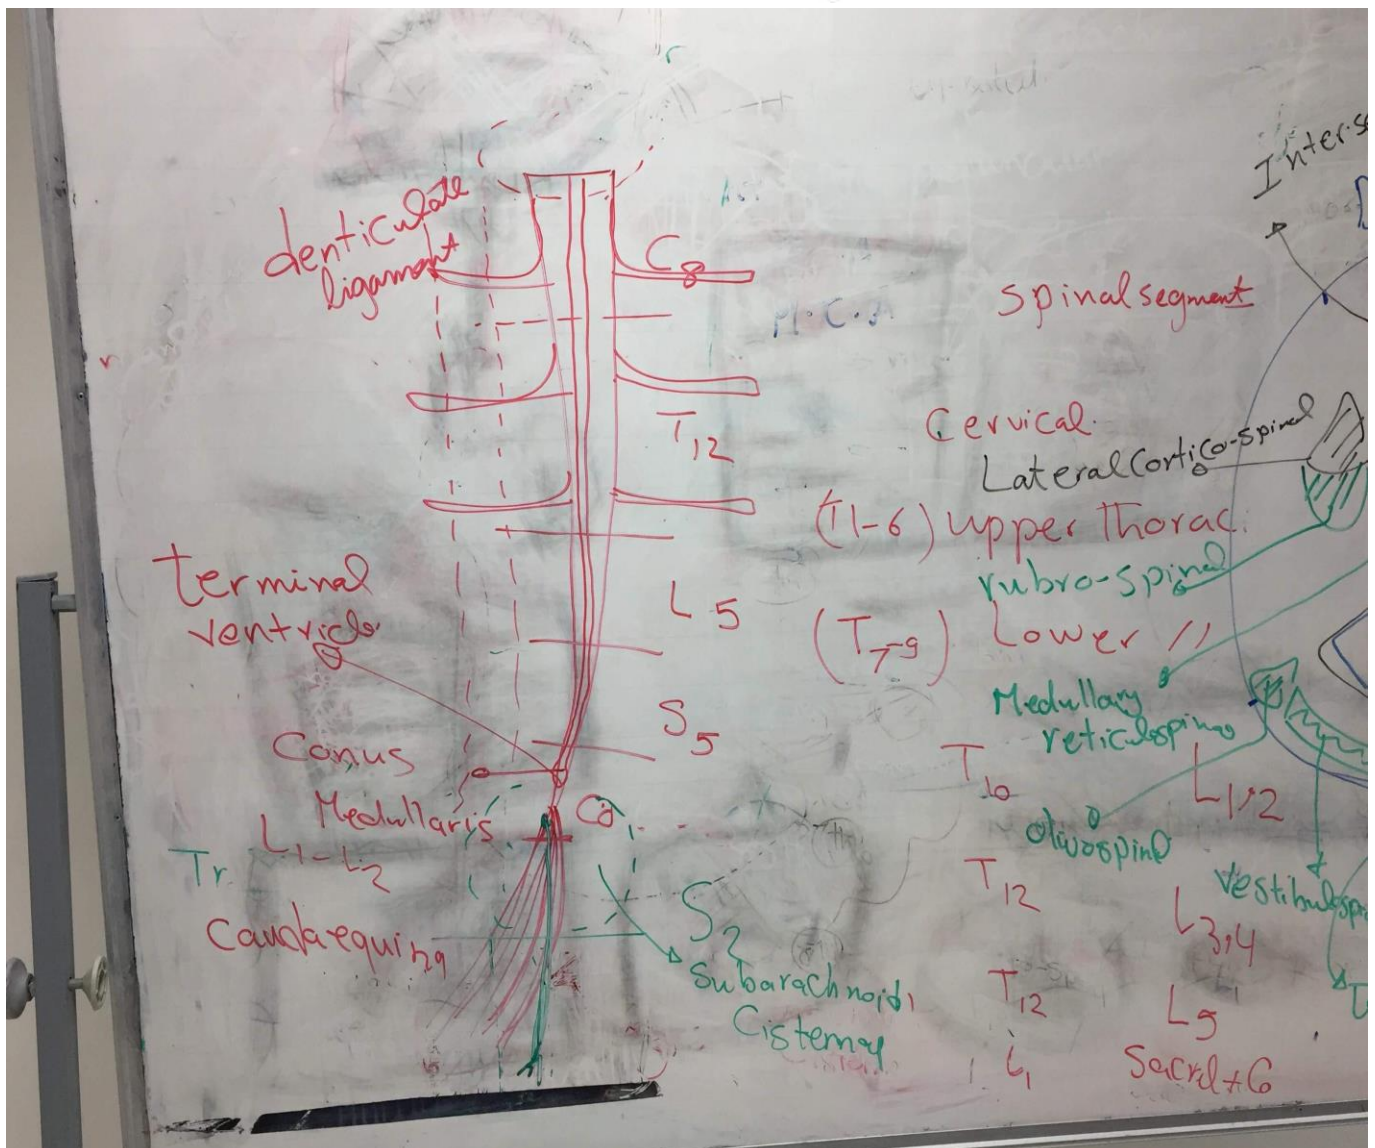 denticulate
ligament
C8
P.I.C.A
T12
terminal
ventricle
L5
S5
Conus
Medullaris
L1-L2
Co
Tr
Cauda equina
S2
Subarachnoid
Cisterna
spinal segment
Cervical
Lateral Cortico-spinal
(T1-6) upper thorac.
rubro-spinal
(T7-9) Lower //
Medullary
reticulospinal
T10 L1,2
olivospinal
T12 L3,4
vestibulospi
T12 L5
L1 Sacral + Co